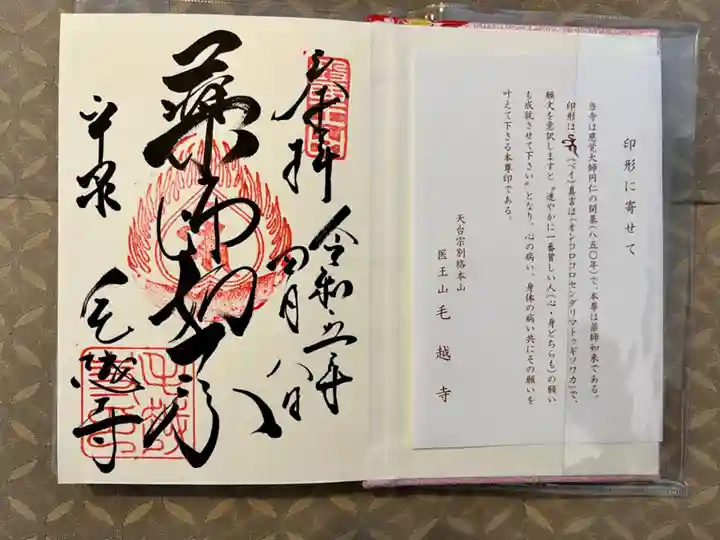 印形に寄せて
当寺は慈覚大師円仁の開基(八五〇年)で、本尊は薬師如来である。
印形は(ベイ)真言は『オンコロコロセンダリマトゥギソワカ』で、
願文を意訳しますと〝速やかに一番貧しい人(心・身どちらも)の願い
も成就させて下さい〟となり、心の病い、身体の病い共にその願いを
叶えて下さる本尊印である。
天台宗別格本山
医王山 毛越寺
奉拝
令和五年
四月八日
薬師如来
平泉
毛越寺